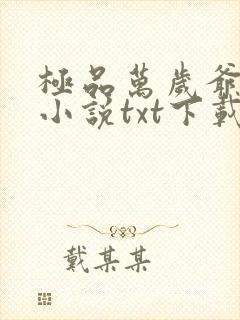 極品萬歲爺
小說txt下載
戴某某